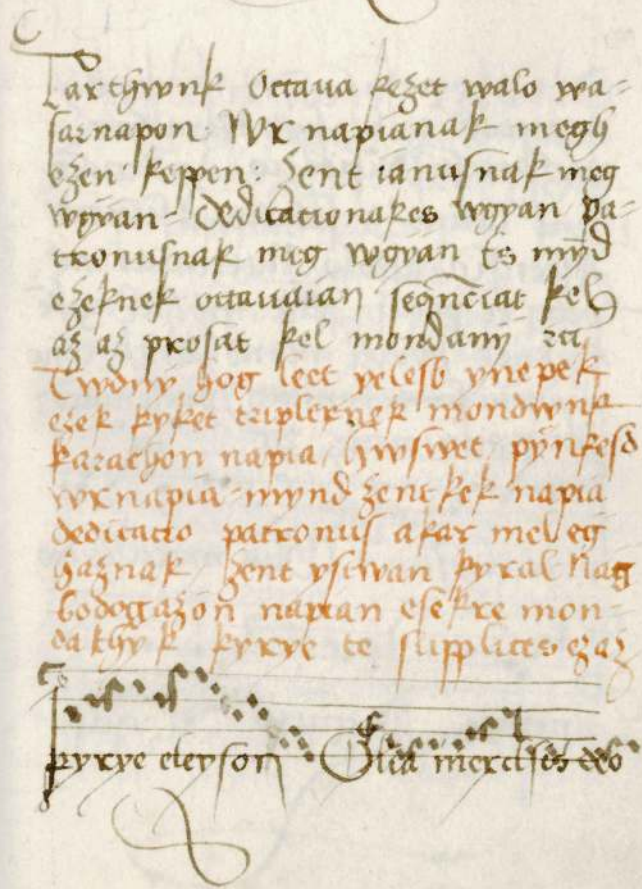 Tarthwnk Octaua kezet walo wa=
sarnapon Wr napianak megh
ezen keppen: Zent ianusnak meg
wgyan= Dedicationakes wgyan pa=
tronusnak meg wgyan Es mynd
ezeknek octauaian seqnciat kel
az az prosat kel mondany
Twdny hog leet yelesb ynepek
ezek kyket triplernek mondwnk
karachon napia hwswet pynkesd
wrnapia mynd zentkek napia
dedicatio patronus akar mel eg
haznak zent ystwan kyral nag
bodogazon napian esekre mon=
dathyk kyrye te supplices ezaz
kyrye eleyson Qlia in excelsis deo